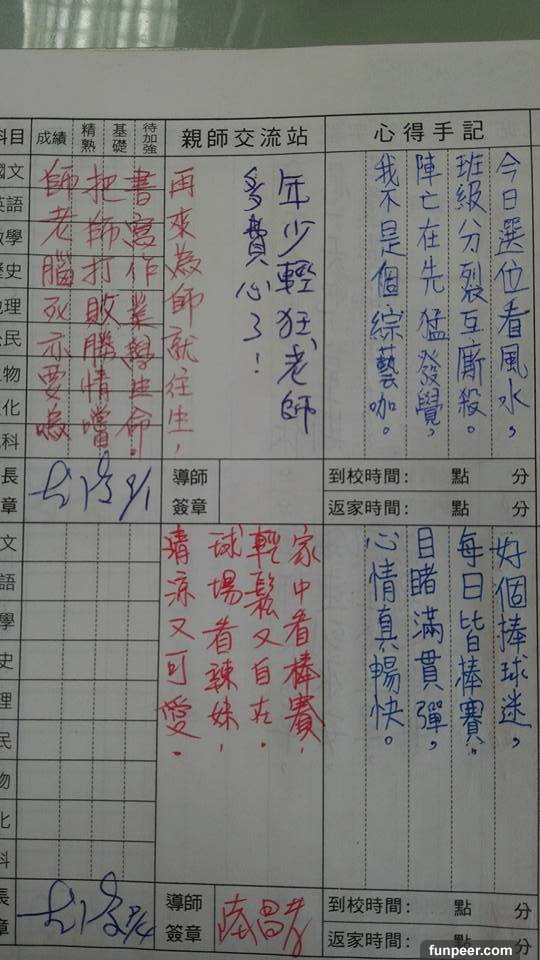 心得手記
今日選位看風水，
班級分裂互廝殺。
陣亡在先猛發覺，
我不是個綜藝咖。
到校時間： 點 分
返家時間： 點 分
親師交流站
年少輕狂，老師
多費心了！
再來為師就往生，
導師
簽章
成績
精熟
基礎
待加強
書寫作業學生命。
把師打敗勝情噹
師老腦死亦要嗚
科目
國文
英語
數學
歷史
地理
公民
生物
理化
科
長
章
9/1
好個棒球迷，
每日皆棒賽，
目睹滿貫彈，
心情真暢快。
到校時間： 點 分
返家時間： 點 分
家中看棒賽，
輕鬆又自在．
球場看辣妹，
清涼又可愛．
導師
簽章
文
語
學
史
理
民
物
化
科
長
章
9/4
funpeer.com